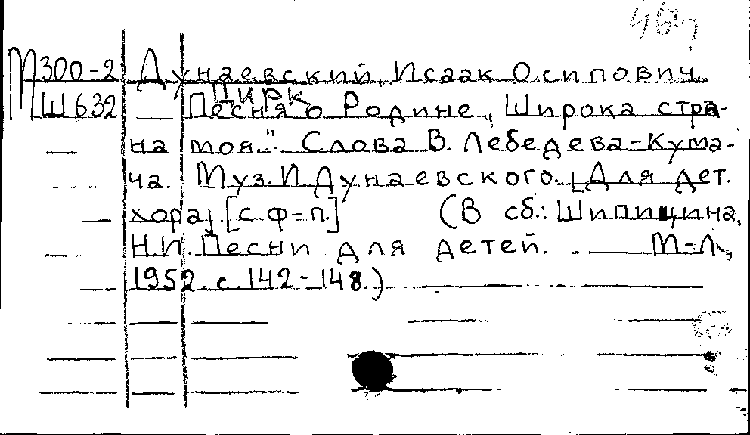 46ч
М300-2 Дунаевский, Исаак Осипович.
Ш632 ЦИРК
Песня о Родине "Широка стра-
на моя.." Слова В. Лебедева-Кума-
ча. Муз. И. Дунаевского. [Для дет.
хора]. [с ф=п.] (В сб.: Шипищина,
Н.И. Песни для детей. М-Л.,
1952. с. 142-148.)